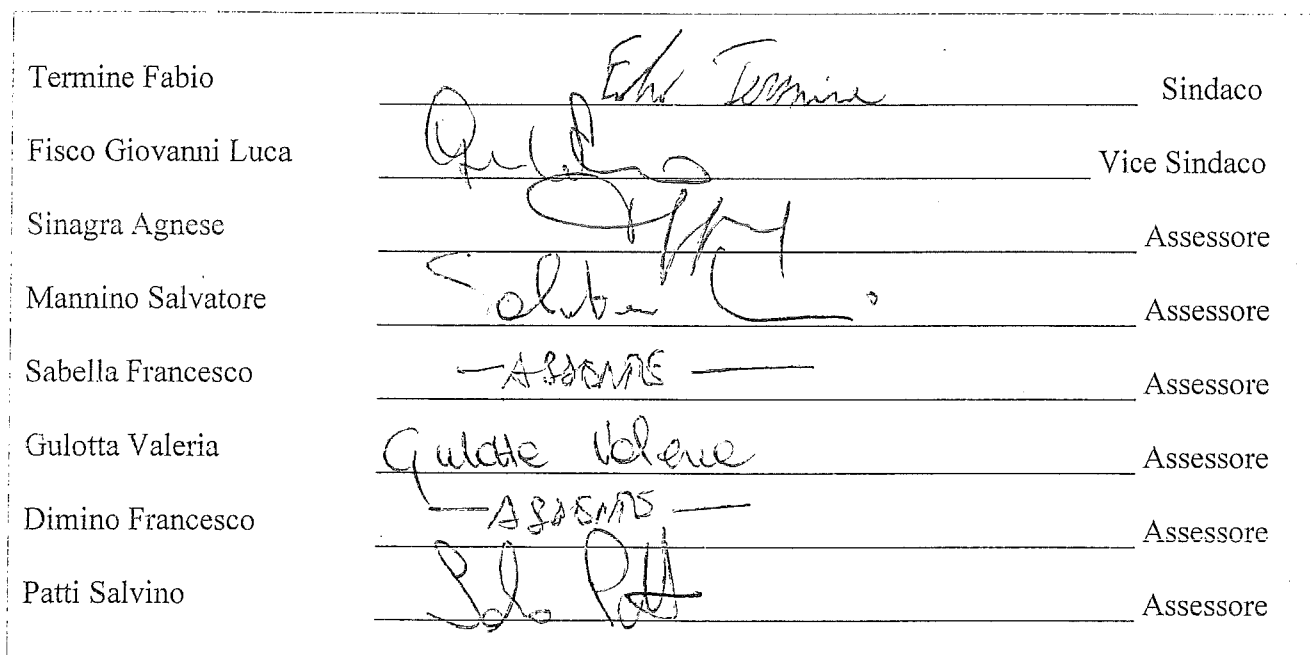 Termine Fabio Fabio Termine Sindaco
Fisco Giovanni Luca Vice Sindaco
Sinagra Agnese Assessore
Mannino Salvatore Salvatore Assessore
Sabella Francesco — ASSENTE — Assessore
Gulotta Valeria Gulotta Valeria Assessore
Dimino Francesco — ASSENTE — Assessore
Patti Salvino Patti Assessore